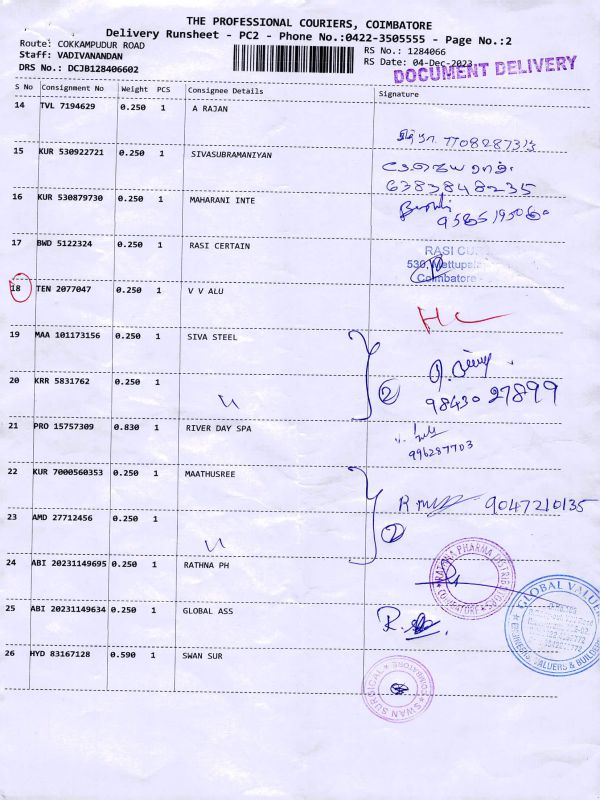 THE PROFESSIONAL COURIERS, COIMBATORE
Delivery Runsheet - PC2 - Phone No.:0422-3505555 - Page No.:2
Route: COKKAMPUDUR ROAD
Staff: VADIVANANDAN
DRS No.: DCJB128406602
RS No.: 1284066
RS Date: 04-Dec-2023
DOCUMENT DELIVERY
S No Consignment No Weight PCS Consignee Details Signature
14 TVL 7194629 0.250 1 A RAJAN
15 KUR 530922721 0.250 1 SIVASUBRAMANIYAN
6383848235
16 KUR 530879730 0.250 1 MAHARANI INTE
17 BWD 5122324 0.250 1 RASI CERTAIN
RASI
530,
Coimbatore
18 TEN 2077047 0.250 1 V V ALU
19 MAA 101173156 0.250 1 SIVA STEEL
20 KRR 5831762 0.250 1
2
98430 27899
21 PRO 15757309 0.830 1 RIVER DAY SPA
996287703
22 KUR 7000560353 0.250 1 MAATHUSREE
9047210135
23 AMD 27712456 0.250 1
24 ABI 20231149695 0.250 1 RATHNA PH
RATHNA PHARMA DISTRIBUTORS
COIMBATORE
25 ABI 20231149634 0.250 1 GLOBAL ASS
GLOBAL VALUERS
ENGINEERS, VALUERS & BUILDERS
26 HYD 83167128 0.590 1 SWAN SUR
SWAN SURGICAL
COIMBATORE